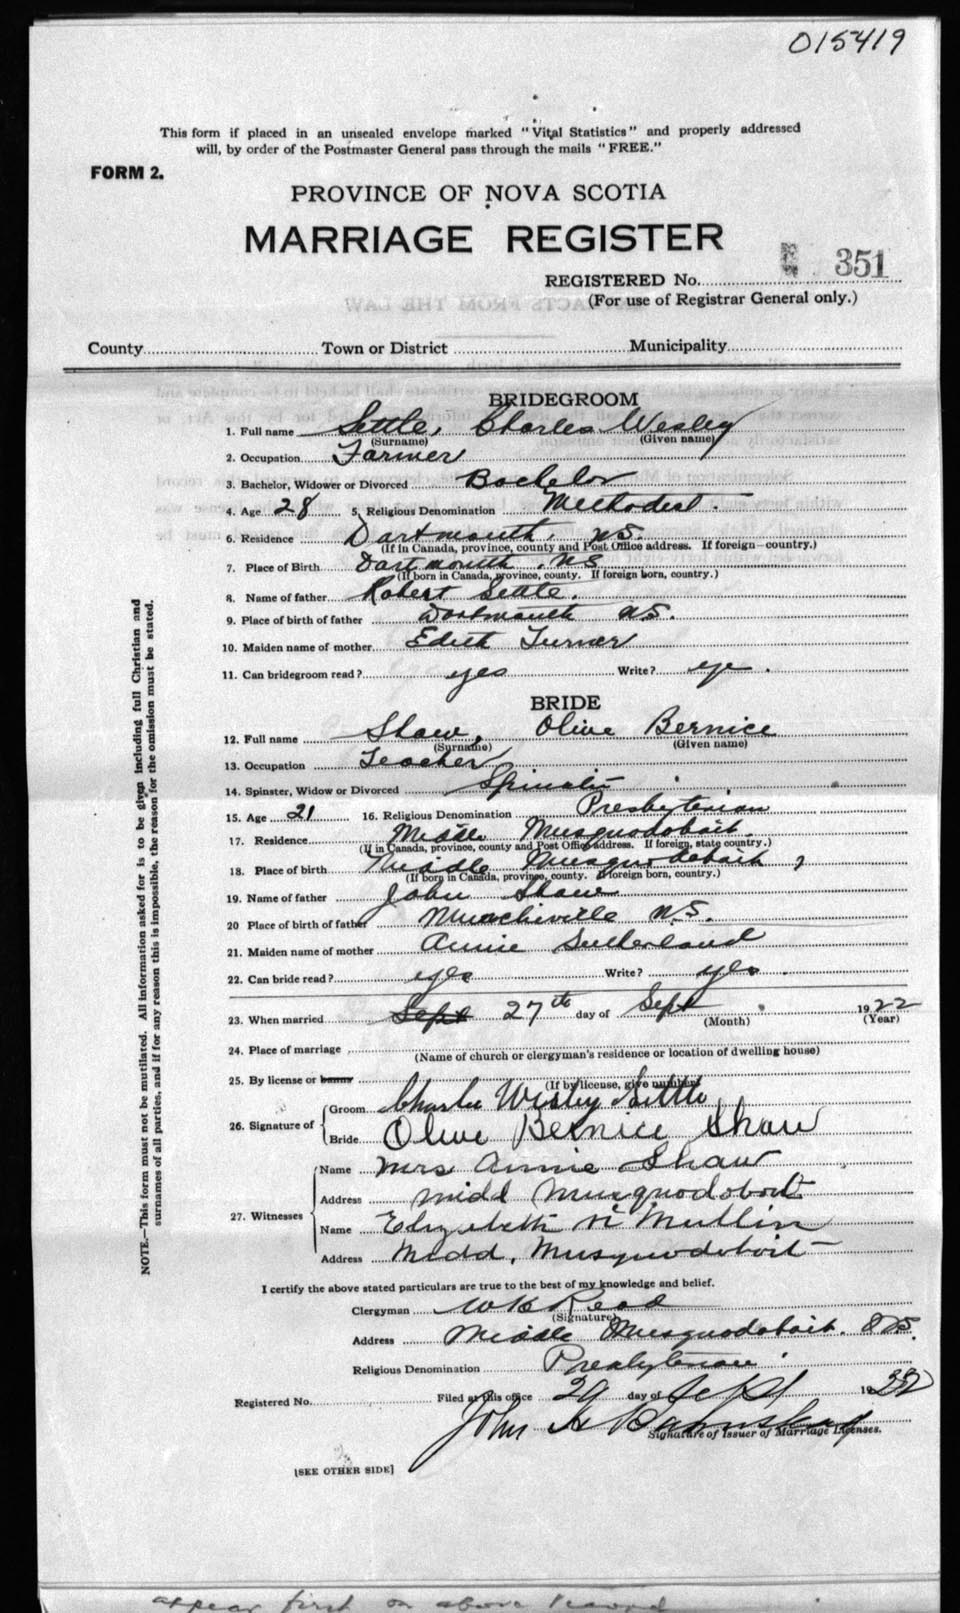 015419
This form if placed in an unsealed envelope marked "Vital Statistics" and properly addressed
will, by order of the Postmaster General pass through the mails "FREE."
FORM 2.
PROVINCE OF NOVA SCOTIA
MARRIAGE REGISTER
REGISTERED No. 351
(For use of Registrar General only.)
County Town or District Municipality
BRIDEGROOM
1. Full name Settle, Charles Wesley
(Surname) (Given name)
2. Occupation Farmer
3. Bachelor, Widower or Divorced Bachelor
4. Age 28 5. Religious Denomination Methodist.
6. Residence Dartmouth, NS.
(If in Canada, province, county and Post Office address. If foreign country.)
7. Place of Birth Dartmouth. NS
(If born in Canada, province, county. If foreign born, country.)
8. Name of father Robert Settle.
9. Place of birth of father Dartmouth NS.
10. Maiden name of mother Edith Turner
11. Can bridegroom read? yes Write? yes.
BRIDE
12. Full name Shaw, Olive Bernice
(Surname) (Given name)
13. Occupation Teacher
14. Spinster, Widow or Divorced Spinster
15. Age 21 16. Religious Denomination Presbyterian
17. Residence Middle Musquodoboit.
(If in Canada, province, county and Post Office address. If foreign, state country.)
18. Place of birth Middle Musquodoboit,
(If born in Canada, province, county. If foreign born, country.)
19. Name of father John Shaw
20 Place of birth of father N.S.
21. Maiden name of mother Annie Sutherland
22. Can bride read? yes Write? yes.
23. When married Sept 27th day of Sept 1922
(Month) (Year)
24. Place of marriage
(Name of church or clergyman's residence or location of dwelling house)
25. By license or banns
(If by license, give number)
26. Signature of Groom Charles Wesley Settle
Bride Olive Bernice Shaw
27. Witnesses Name Mrs Annie Shaw
Address Midd Musquodoboit
Name Elizabeth Mullin
Address Midd, Musquodoboit
I certify the above stated particulars are true to the best of my knowledge and belief.
Clergyman Read
(Signature)
Address Middle Musquodoboit. NS.
Religious Denomination Presbyterian.
Registered No. Filed at this office 29 day of 1922
John
Signature of Issuer of Marriage Licenses.
[SEE OTHER SIDE]
NOTE.—This form must not be mutilated. All information asked for is to be given including full Christian and
surnames of all parties, and if for any reason this is impossible, the reason for the omission must be stated.
appear first on above record